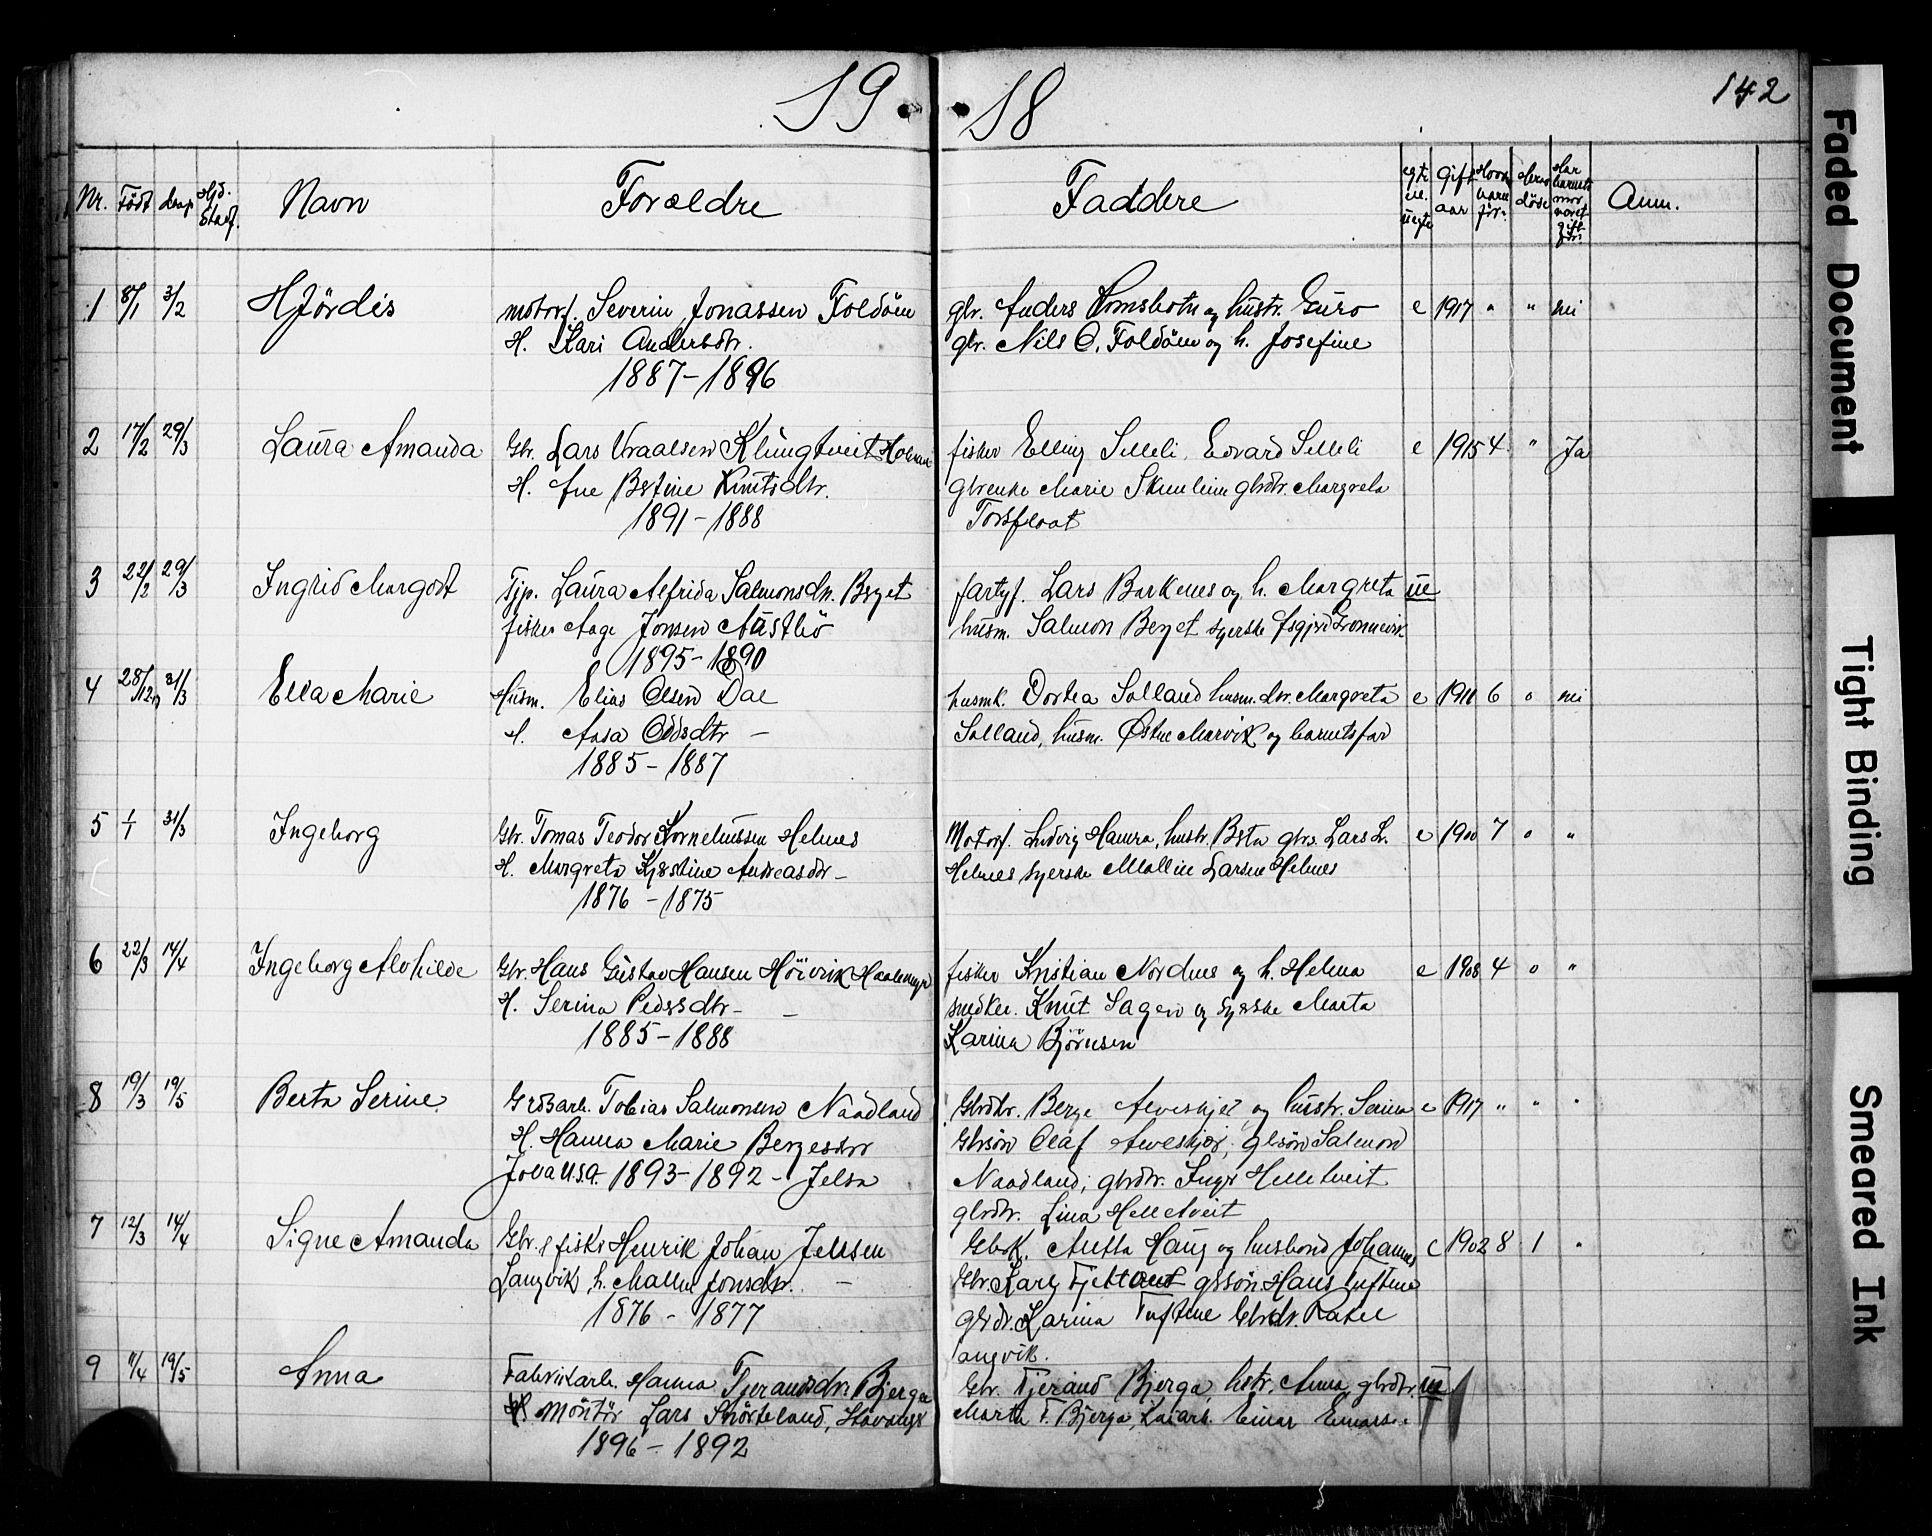 19 18
142
Nr. Födt döpt Hjd. Stad. Navn Forældre Faddere egte ue. uegte Gift aar Anm.
1 8/1 3/2 Hjördis motorf. Severin Jonassen Foldöen glr. Anders og hustr. Guro e 1917 " " nei
H. Kari Andersdtr. gbr. Nils O. Foldöen og h. Josefine
1887-1896
2 17/2 29/3 Laura Amanda Gbr. Lars Vraalsen Klungtveit fisker Elling Selleli, Edvard Selleli e 1915 4 " Ja
H. Ane Bertine Knutsdtr. gbrenke Marie Skeuleim gbrdtr. Margreta
1891-1888
3 22/2 29/3 Ingrid Margot Tjp. Laura Alfrida Salmonsdtr. Berget fartyf. Lars Barkenes og h. Margreta ue
fisker Aage Jonsen Austbö husm. Salmon Berget syerske
1895-1890
4 28/12 17 31/3 Ella Marie Husm. Elias Olsen Dal husmk. Dortea Solland husm.dtr. Margreta e 1911 6 o nei
H. Aasa Oddsdtr — Solland, husm. Østen Marvik og barnets far
1885-1887
5 1/1 31/3 Ingeborg Gbr. Tomas Teodor Korneliussen Helnes Motorf. Ludvig Hamra, hustr. Berta gbr. Lars L. e 1900 7 o "
H. Margreta Kjerstine Andreasdtr — Helnes syerske Malline Larsen Helnes
1876 - 1875
6 22/3 14/4 Ingeborg Alvhilde Gbr. Hans Gustav Hansen Höivik fisker Kristian Nordnes og h. Helena e 1908 4 o "
H. Serina Pedersdtr — — snedker. Knut Sagen og syerske Marta
1885-1888 Karina Björnsen
8 19/3 19/5 Berta Serine Grdsarb. Tobias Salmonsen Naadland Gbrdkr. Berge Alveskjer og hustr. Serina e 1917 " " "
H. Hanna Marie Bergesdtr Gbrsön Olaf Alveskjer, gbrsön Salmon
Jova U.S.A. 1893-1892 - Jelsa Naadland, gbrdtr. Inger Helletveit
gbrdtr. Lina Helletveit
7 12/3 14/4 Signe Amanda Gbr. & fisker Henrik Johan Jelssen Gbrk. Aletta Haug og husbond Johannes e 1902 8 1 "
Langvik, h. Malene Jonsdtr. — Gbr. Karl Fjetland gbsön Hans Tuftene
1876 - 1877 gbrdtr. Karina Tuftene Gbrdtr. Rakel
Langvik.
9 11/4 19/5 Anna Fabrikarb. Hanna Tjerandsdtr. Bjerga Gbr. Tjerand Bjerga, hstr. Anna, gbrdtr. ue
Montör Lars Snörteland, Stavanger Marta T. Bjerga, Einar
1896 - 1892
Faded Document
Tight Binding
Smeared Ink